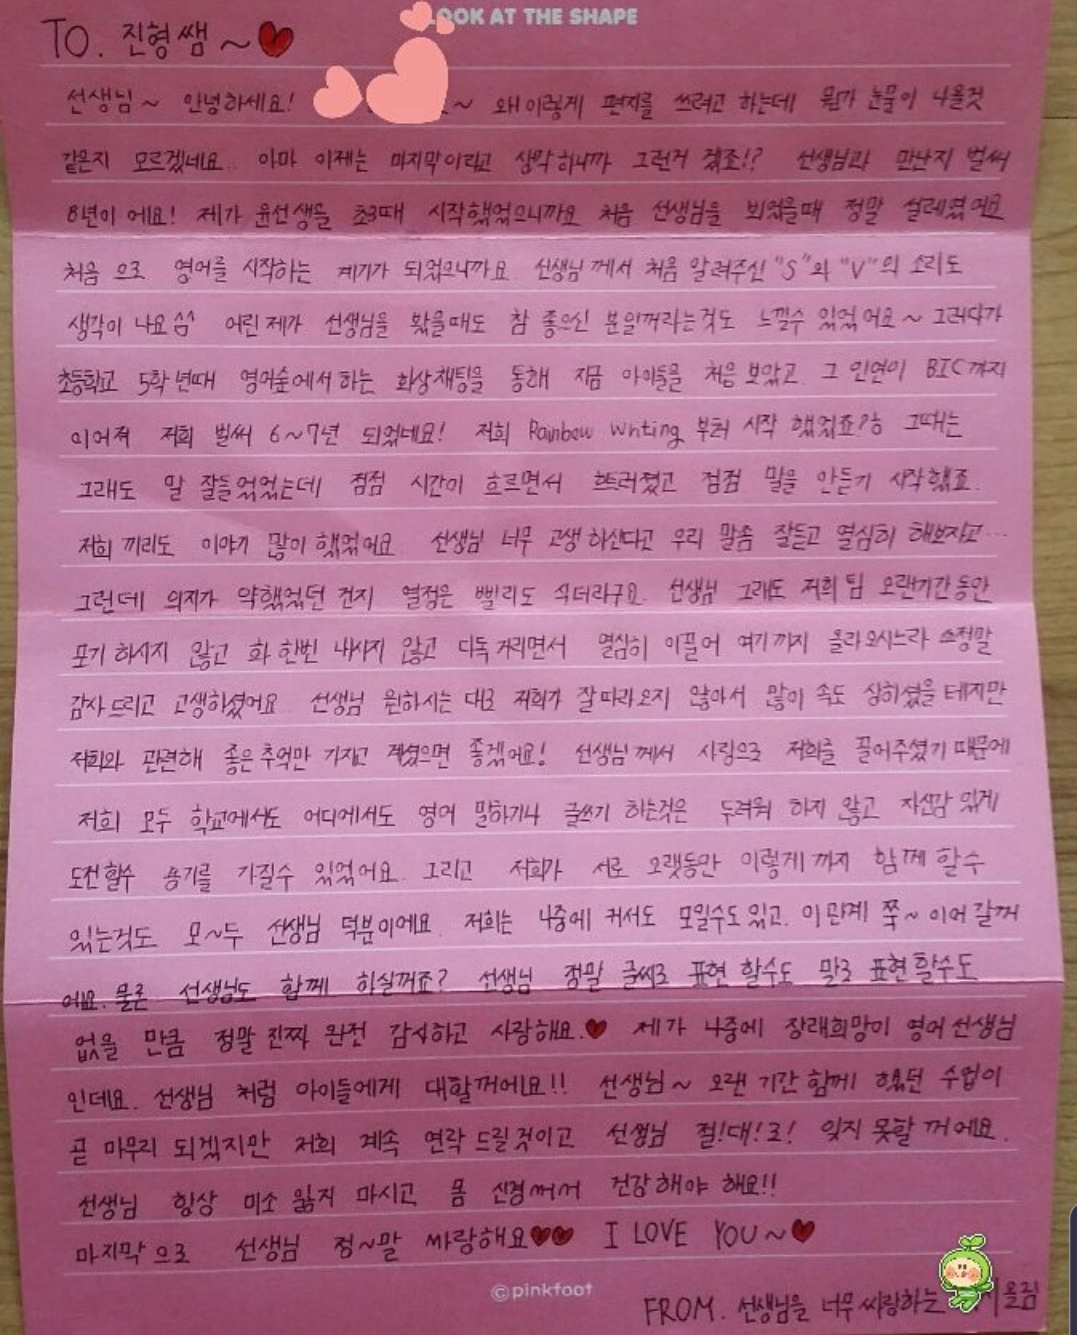 LOOK AT THE SHAPE
TO. 진형쌤~
선생님~ 안녕하세요! ~ 왜 이렇게 편지를 쓰려고 하는데 뭔가 눈물이 나올것
같은지 모르겠네요.. 아마 이제는 마지막이라고 생각하니까 그런거 겠죠!? 선생님과 만난지 벌써
8년이에요! 제가 윤선생을 초3때 시작했었으니까요 처음 선생님을 뵈었을때 정말 설레였어요
처음으로 영어를 시작하는 계기가 되었으니까요. 선생님께서 처음 알려주신 "S"와 "V"의 소리도
생각이 나요^^ 어린 제가 선생님을 봤을때도 참 좋으신 분일꺼라는것도 느낄수 있었어요~ 그러다가
초등학교 5학년때 영어숲에서 하는 화상채팅을 통해 지금 아이들을 처음 보았고 그 인연이 BIC까지
이어져 저희 벌써 6~7년 되었네요! 저희 Rainbow Writing 부터 시작 했었죠?ㅎ 그때는
그래도 말 잘들었었는데 점점 시간이 흐르면서 흐트러졌고 점점 말을 안듣기 시작했죠.
저희 끼리도 이야기 많이 했었어요 선생님 너무 고생 하신다고 우리 말좀 잘듣고 열심히 해보자고...
그런데 의지가 약했었던 건지 열정은 빨리도 식더라구요. 선생님 그래도 저희 팀 오랜기간동안
포기 하시지 않고 화 한번 내시지 않고 다독 거리면서 열심히 이끌어 여기까지 올라오시느라 정말
감사드리고 고생하셨어요.. 선생님 원하시는 대로 저희가 잘따라오지 않아서 많이 속도 상하셨을 테지만
저희와 관련해 좋은추억만 가지고 계셨으면 좋겠어요! 선생님께서 사랑으로 저희를 끌어주셨기 때문에
저희 모두 학교에서도 어디에서도 영어 말하기나 글쓰기 하는것은 두려워 하지 않고 자신감 있게
도전할수 용기를 가질수 있었어요. 그리고 저희가 서로 오랫동안 이렇게까지 함께 할수
있는것도 모~두 선생님 덕분이에요. 저희는 나중에 커서도 모일수도 있고. 이 관계 쭉~ 이어갈꺼
에요. 물론 선생님도 함께 하실꺼죠? 선생님 정말 글씨로 표현 할수도 말로 표현할수도
없을 만큼 정말 진짜 완전 감사하고 사랑해요. 제가 나중에 장래희망이 영어선생님
인데요. 선생님 처럼 아이들에게 대할꺼에요!! 선생님~ 오랜 기간 함께 했던 수업이
곧 마무리 되겠지만 저희 계속 연락 드릴것이고 선생님 절!대!로! 잊지 못할 꺼에요.
선생님 항상 미소 잃지 마시고 몸 신경써서 건강해야 해요!!
마지막으로 선생님 정~말 싸랑해요 I LOVE YOU~
©pinkfoot
FROM. 선생님을 너무 싸랑하는